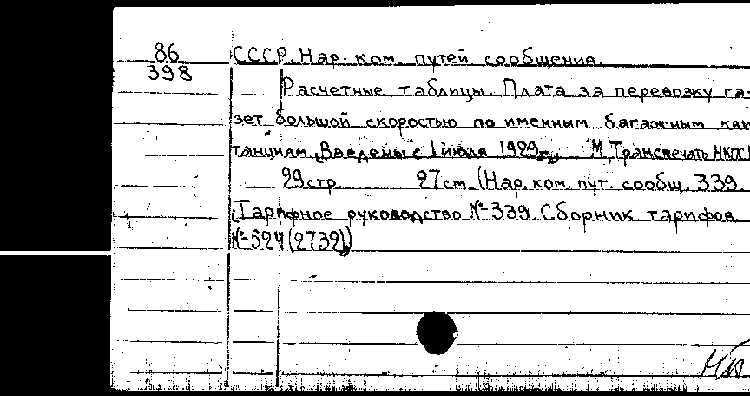 86 СССР. Нар. ком. путей сообщения.
398
Расчетные таблицы. Плата за перевозку га-
зет большой скоростью по именным багажным кви
танциям. Введены с 1 июля 1929 г. М, Транспечать НКПС
29 стр. 27 см. (Нар. ком. пут. сообщ. 339
Тарифное руководство № 339. Сборник тарифов
№ 524 (2732))